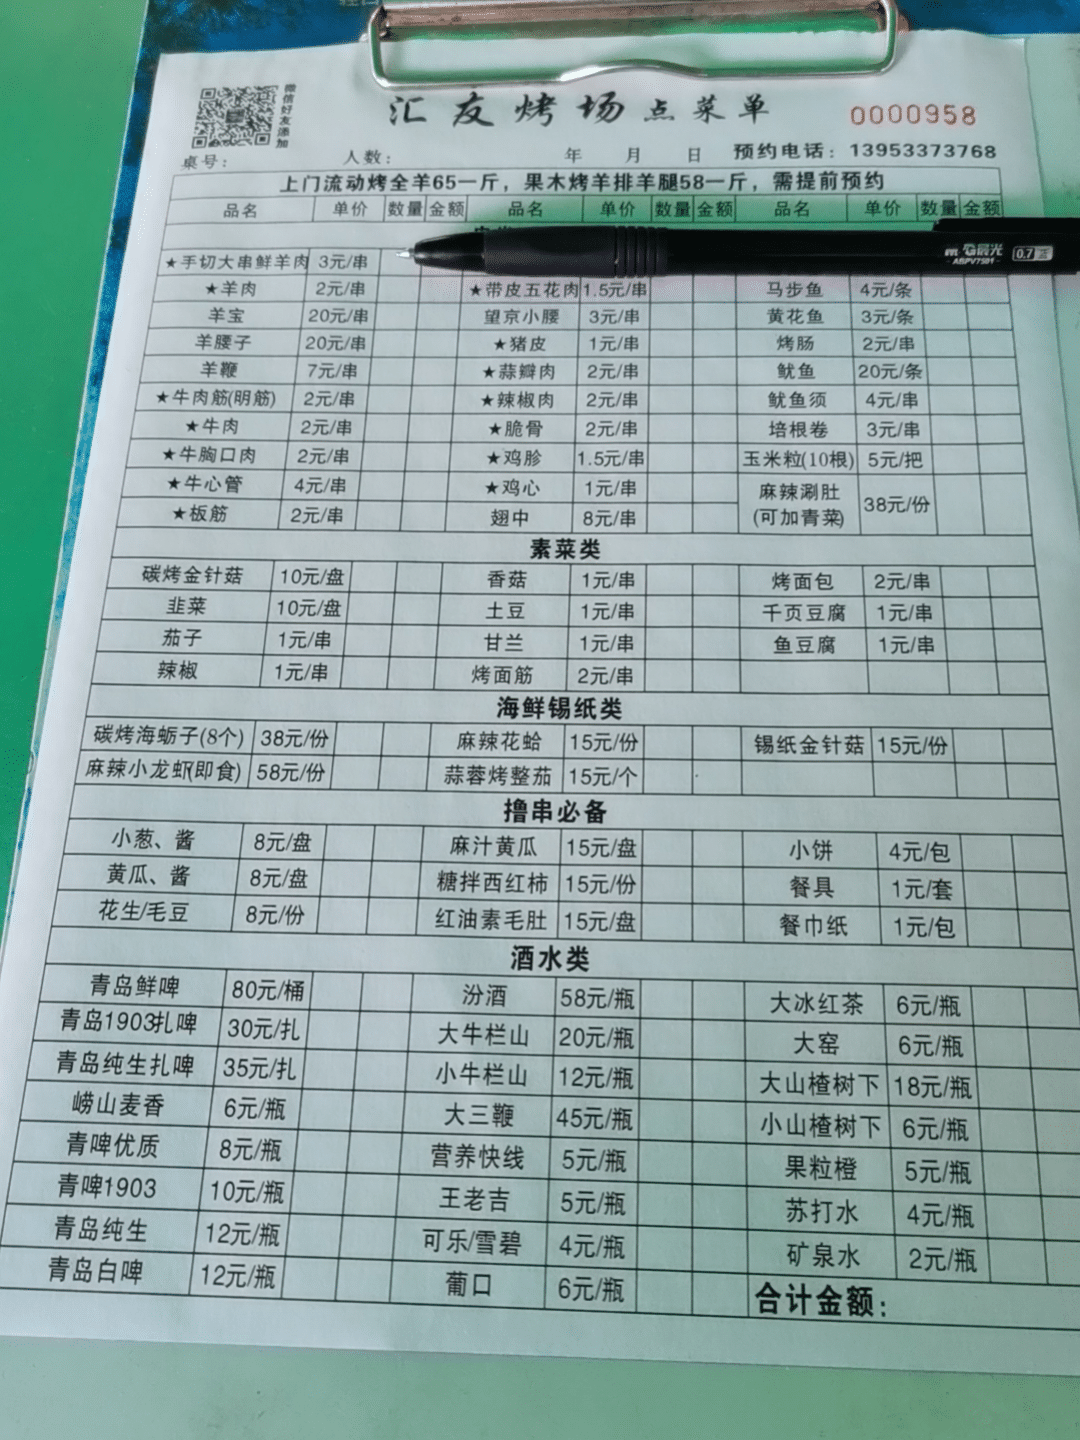 微信好友添加
汇友烤场点菜单 0000958
桌号： 人数： 年 月 日 预约电话：13953373768
上门流动烤全羊65一斤，果木烤羊排羊腿58一斤，需提前预约
品名 单价 数量 金额 品名 单价 数量 金额 品名 单价 数量 金额
★手切大串鲜羊肉 3元/串
M&G晨光 0.7
ABPV7501
★羊肉 2元/串 ★带皮五花肉 1.5元/串 马步鱼 4元/条
羊宝 20元/串 望京小腰 3元/串 黄花鱼 3元/条
羊腰子 20元/串 ★猪皮 1元/串 烤肠 2元/串
羊鞭 7元/串 ★蒜瓣肉 2元/串 鱿鱼 20元/条
★牛肉筋(明筋) 2元/串 ★辣椒肉 2元/串 鱿鱼须 4元/串
★牛肉 2元/串 ★脆骨 2元/串 培根卷 3元/串
★牛胸口肉 2元/串 ★鸡胗 1.5元/串 玉米粒(10根) 5元/把
★牛心管 4元/串 ★鸡心 1元/串 麻辣涮肚 38元/份
★板筋 2元/串 翅中 8元/串 (可加青菜)
素菜类
碳烤金针菇 10元/盘 香菇 1元/串 烤面包 2元/串
韭菜 10元/盘 土豆 1元/串 千页豆腐 1元/串
茄子 1元/串 甘兰 1元/串 鱼豆腐 1元/串
辣椒 1元/串 烤面筋 2元/串
海鲜锡纸类
碳烤海蛎子(8个) 38元/份 麻辣花蛤 15元/份 锡纸金针菇 15元/份
麻辣小龙虾(即食) 58元/份 蒜蓉烤整茄 15元/个
撸串必备
小葱、酱 8元/盘 麻汁黄瓜 15元/盘 小饼 4元/包
黄瓜、酱 8元/盘 糖拌西红柿 15元/份 餐具 1元/套
花生/毛豆 8元/份 红油素毛肚 15元/盘 餐巾纸 1元/包
酒水类
青岛鲜啤 80元/桶 汾酒 58元/瓶 大冰红茶 6元/瓶
青岛1903扎啤 30元/扎 大牛栏山 20元/瓶 大窑 6元/瓶
青岛纯生扎啤 35元/扎 小牛栏山 12元/瓶 大山楂树下 18元/瓶
崂山麦香 6元/瓶 大三鞭 45元/瓶 小山楂树下 6元/瓶
青啤优质 8元/瓶 营养快线 5元/瓶 果粒橙 5元/瓶
青啤1903 10元/瓶 王老吉 5元/瓶 苏打水 4元/瓶
青岛纯生 12元/瓶 可乐/雪碧 4元/瓶 矿泉水 2元/瓶
青岛白啤 12元/瓶 葡口 6元/瓶 合计金额：